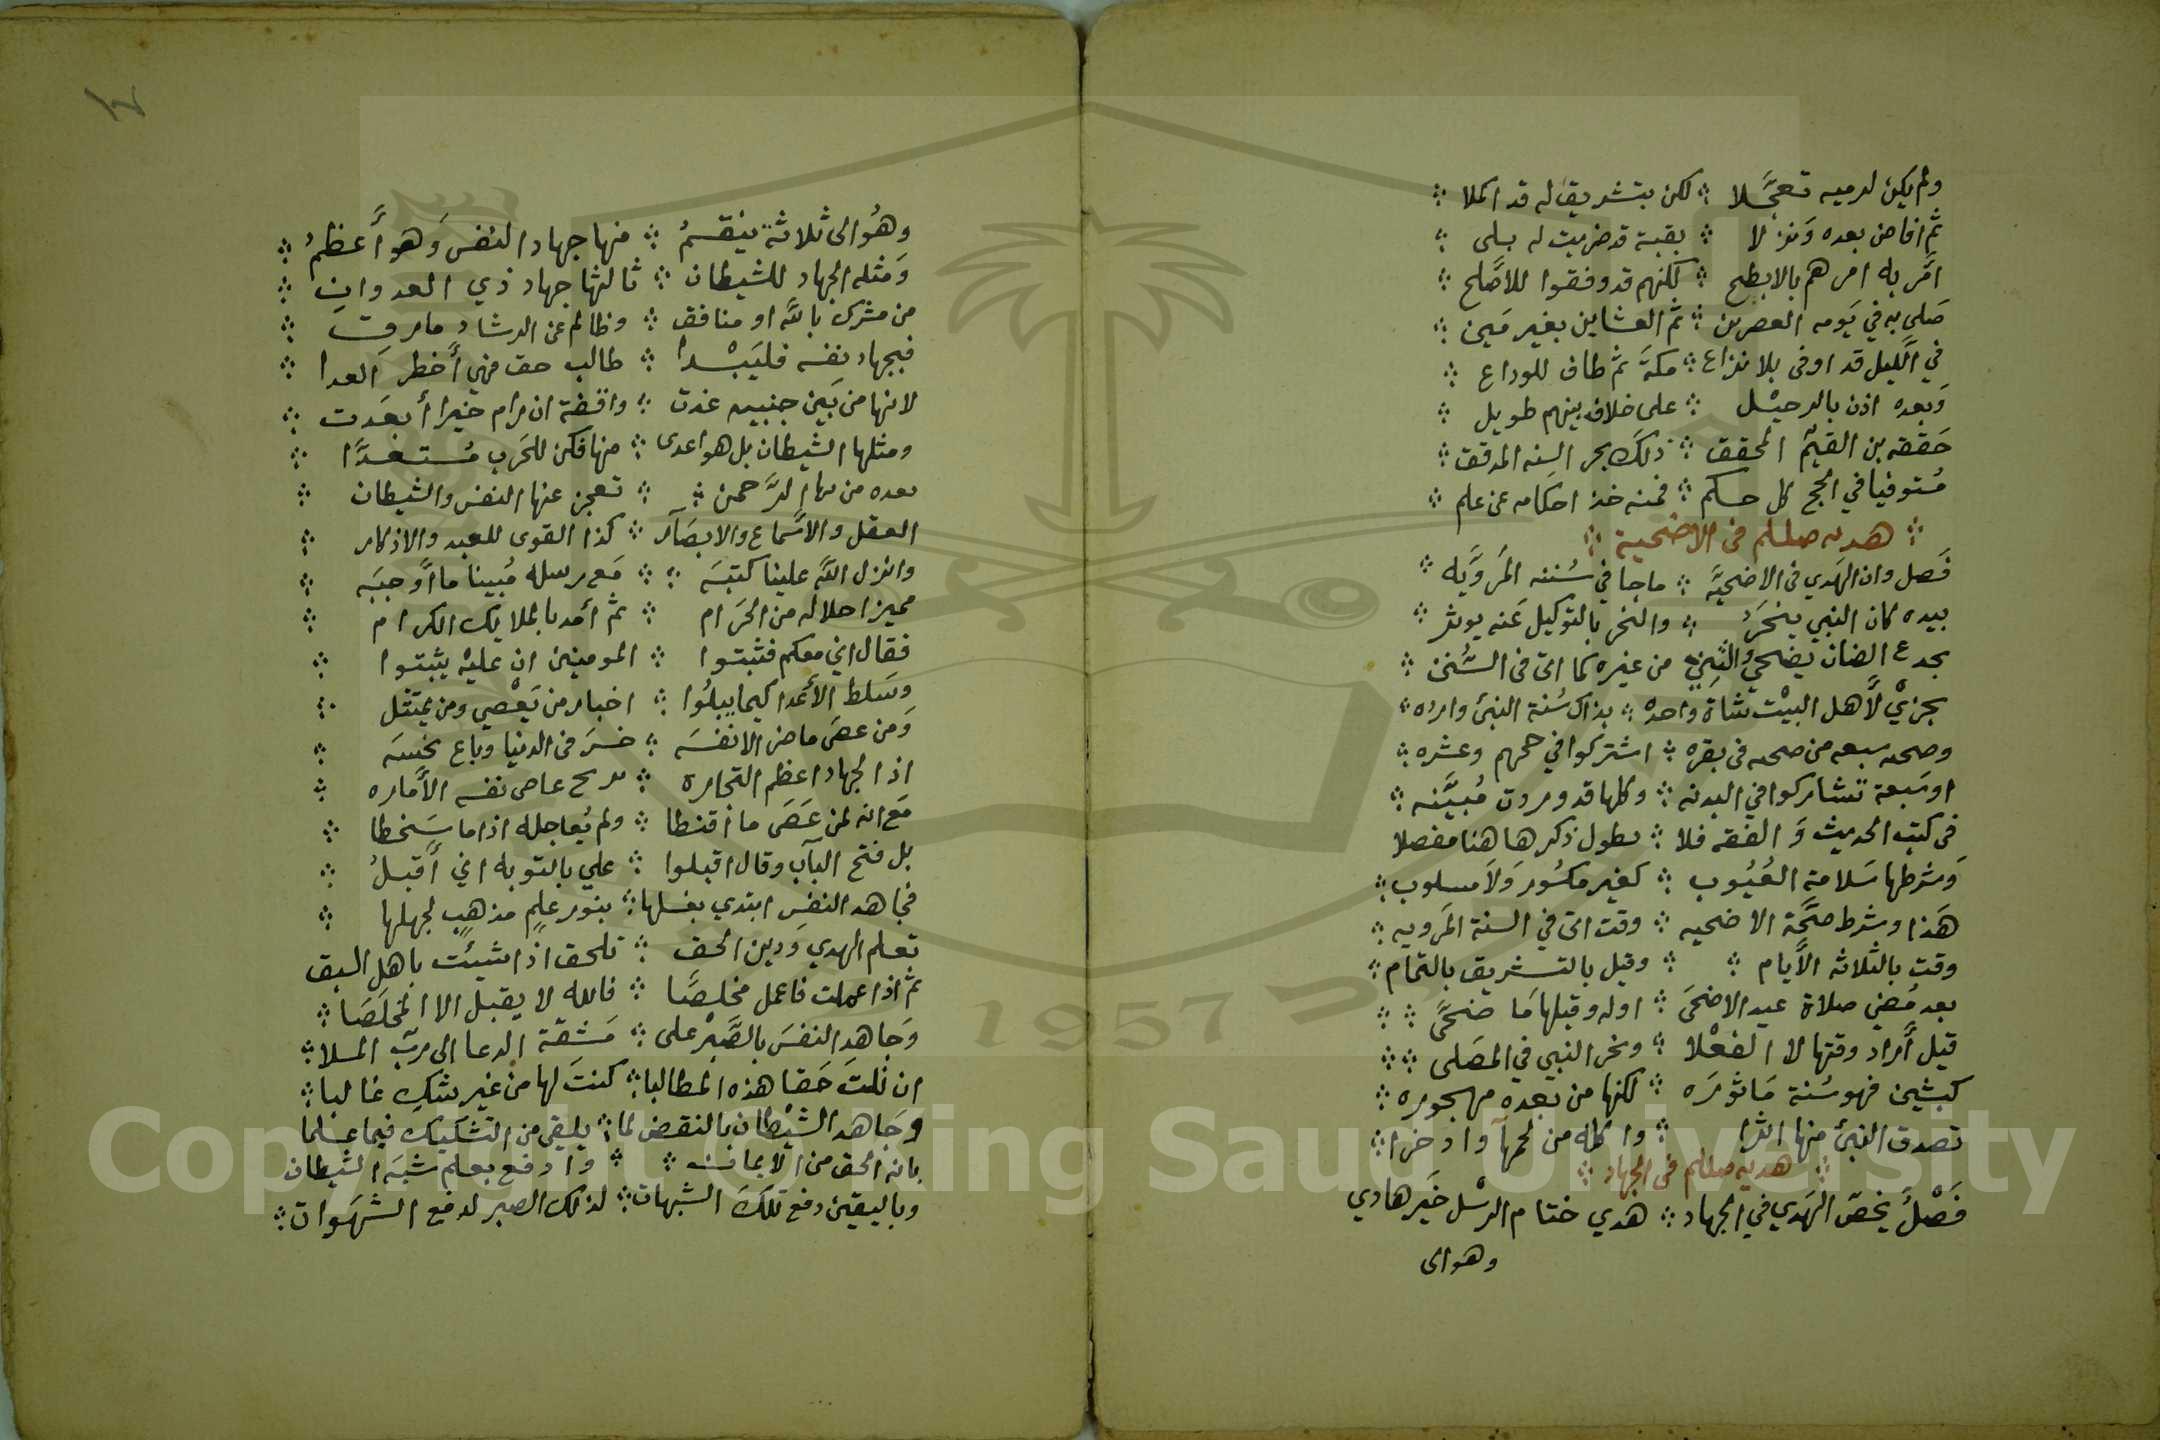 ولم يكن لرميه تعجلا ∴ لكن بتشريق له قد اكملا ∴
ثم افاض بعده ونزلا ∴ بقبة قد ضربت له بلى ∴
امر به امرهم بالابطح ∴ لكنهم قد وفقوا للاصلح ∴
صلى به في يومه العصرين ∴ ثم العشاين بغير مين ∴
في الليل قد اوفى بلا نزاع ∴ مكة ثم طاف للوداع ∴
وبعده اذن بالرحيل ∴ على خلاف بينهم طويل ∴
حققه بن القيم المحقق ∴ ذلك بحر السنه المدقق ∴
مستوفيا في الحج كل حكم ∴ فمنه خذ احكامه عن علم ∴
∴ هديه صللم في الاضحية ∴
فصل وان الهدي في الاضحية ∴ ما جا في سننه المرويه ∴
بيده كان النبي ينحر ∴ والنحر بالتوكيل عنه يوثر ∴
بجدع الضان يضحي والثني من غيره كما اتى في السنن ∴
يجزي لاهل البيت شاة واحده ∴ بذاك سنة النبي وارده ∴
وصحه سبعه من صحبه في بقره ∴ اشتركوا في حجهم وعشره ∴
او سبعة تشاركوا في البدنه ∴ وكلها قد وردت مبينه ∴
في كتب الحديث و الفقه فلا ∴ يطول ذكرها هنا مفصلا
وشرطها سلامة العيوب ∴ كغير مكسور ولا مسلوب ∴
هذا وشرط صحة الاضحيه ∴ وقت اتى في السنة المرويه ∴
وقت بالثلاثه الأيام ∴ ∴ وقيل بالتشريق بالتمام ∴
بعد مضي صلاة عيد الاضحى ∴ اوله وقبلها ما ضحى ∴ ∴
قيل أراد وقتها لا الفعلا ∴ ونحر النبي في المصلى ∴ ∴
كبشين فهو سنة ماثوره ∴ لكنها من بعده مهجوره ∴
تصدق النبي منها الثرا ∴ واكله من لحمها وادخرا ∴
∴ هديه صللم في الجهاد ∴
فصل يخص الهدي في الجهاد ∴ هدي ختام الرسل خير هادي
وهو الى
وهو الى ثلاثة ينقسم ∴ منها جهاد النفس وهو أعظم ∴
ومثله الجهاد للشيطان ∴ ثالثها جهاد ذي العدوان ∴
من مشرك بالله او منافق ∴ وظالم عن الرشاد مارق ∴
فبجهاد نفسه فليبدا ∴ طالب حق فهي أخطر العدا ∴
لانها من بين جنبيه غدت ∴ واقفة ان رام خيرا أبعدت ∴
ومثلها الشيطان بل هو اعدى ∴ منها فكن للحرب مستعدا ∴
بعده من الرحمن ∴ ∴ تعجز عنها النفس والشيطان ∴
العقل والاسماع والابصار ∴ كذا القوى للعبد والاذكار ∴
وانزل الله علينا كتبه ∴ ∴ مع رسله مبينا ما أوجبه ∴
مميزا حلاله من الحرام ∴ ثم أمد بالملايك الكرام ∴
فقال اني معكم فثبتوا ∴ المومنين ان عليه يثبتوا ∴
وسلط الأعدا كيما يبلوا ∴ اخبار من يعصي ومن يمتثل ∴
ومن عصى ما ضر الا نفسه ∴ خسر في الدنيا وباع بخسه ∴
اذ الجهاد اعظم التجاره ∴ عاصي نفسه الأماره ∴
مع انه لمن عصى ما أقنطا ∴ ولم يعاجله اذا ما سخطا ∴
بل فتح الباب وقال اقبلوا ∴ علي بالتوبه اني أقبل ∴
فجاهد النفس ابتدي بغسلها ∴ بنور علم مذهب لجهلها ∴
تعلم الهدي ودين الحق ∴ تلحق اذا شيئت باهل السبق
ثم اذا عملت فاعمل مخلصا ∴ فالله لا يقبل الا المخلصا ∴
وجاهد النفس بالصبر على ∴ مشقة الدعا الى رب الملا ∴
ان نلت حقا هذه المطالبا ∴ كنت لها من غير شك غالبا ∴
وجاهد الشيطان بالنقض لما ∴ يلقي من التشكيك فيما علما
بانه الحق من الايمان ∴ ∴ وادفع بعلم شبه الشيطان
وباليقين دفع تلك الشبهات ∴ لذلك الصبر لدفع الشهوات ∴
1957
Copyright © King Saud University